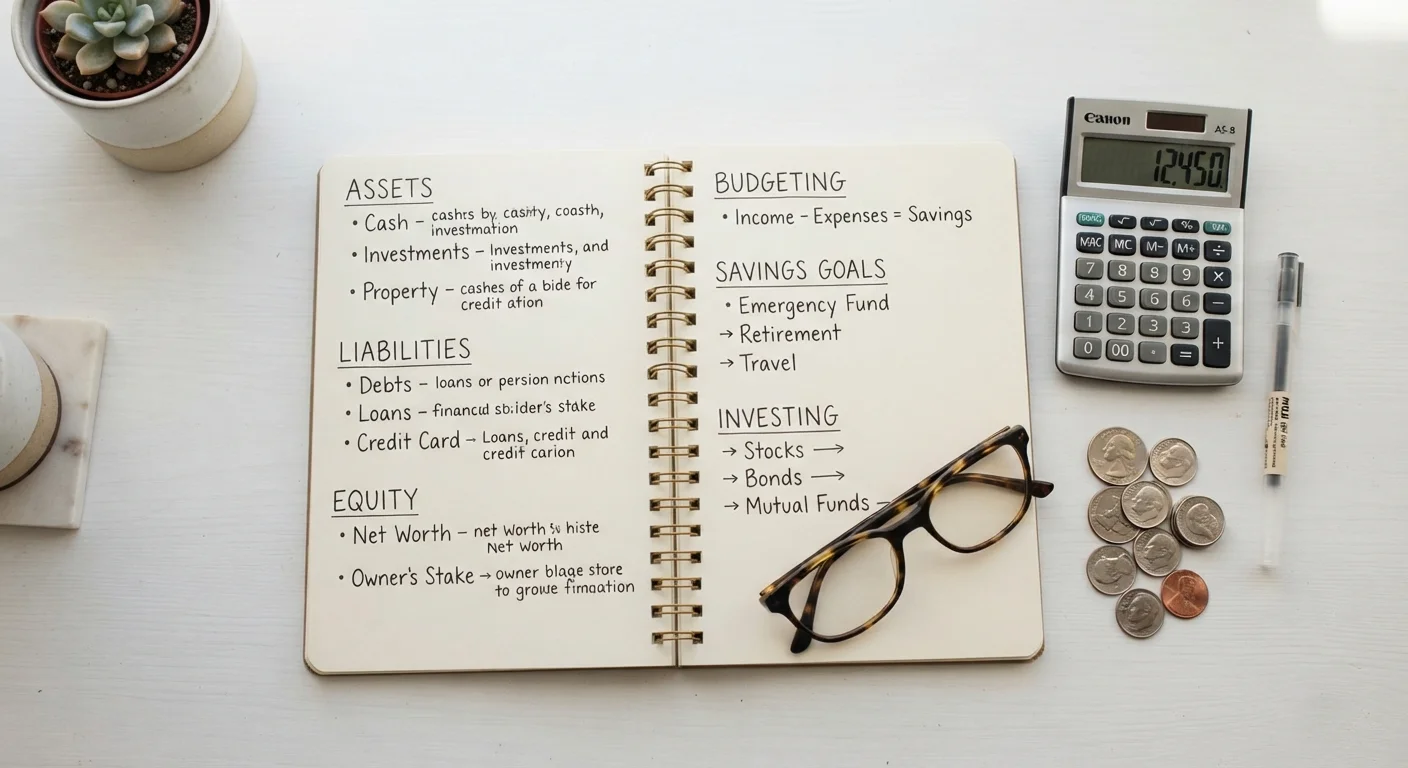 ASSETS
• Cash – cashrs by. casity, coasth,
investmation
• Investments – Investments, and
investmenty
• Property – cashes of a bide for
credit ation
LIABILITIES
• Debts – loans or persion nctions
• Loans – financud sbider's stake
• Credit Card → Loans, credit and
credit carion
EQUITY
• Net Worth – net worth histe
Net worth
• Owner's Stake → owner blage store
to growe fimation
BUDGETING
• Income – Expenses = Savings
SAVINGS GOALS
• Emergency Fund
→ Retirement
→ Travel
INVESTING
→ Stocks →
→ Bonds →
→ Mutual Funds –
Canon
AS-8
12,450
√ √ %
MAC MC M– M+ ÷
7 8 8 9 ×
4 5 6 6 –
1 2 3 3 +
0 00 . =